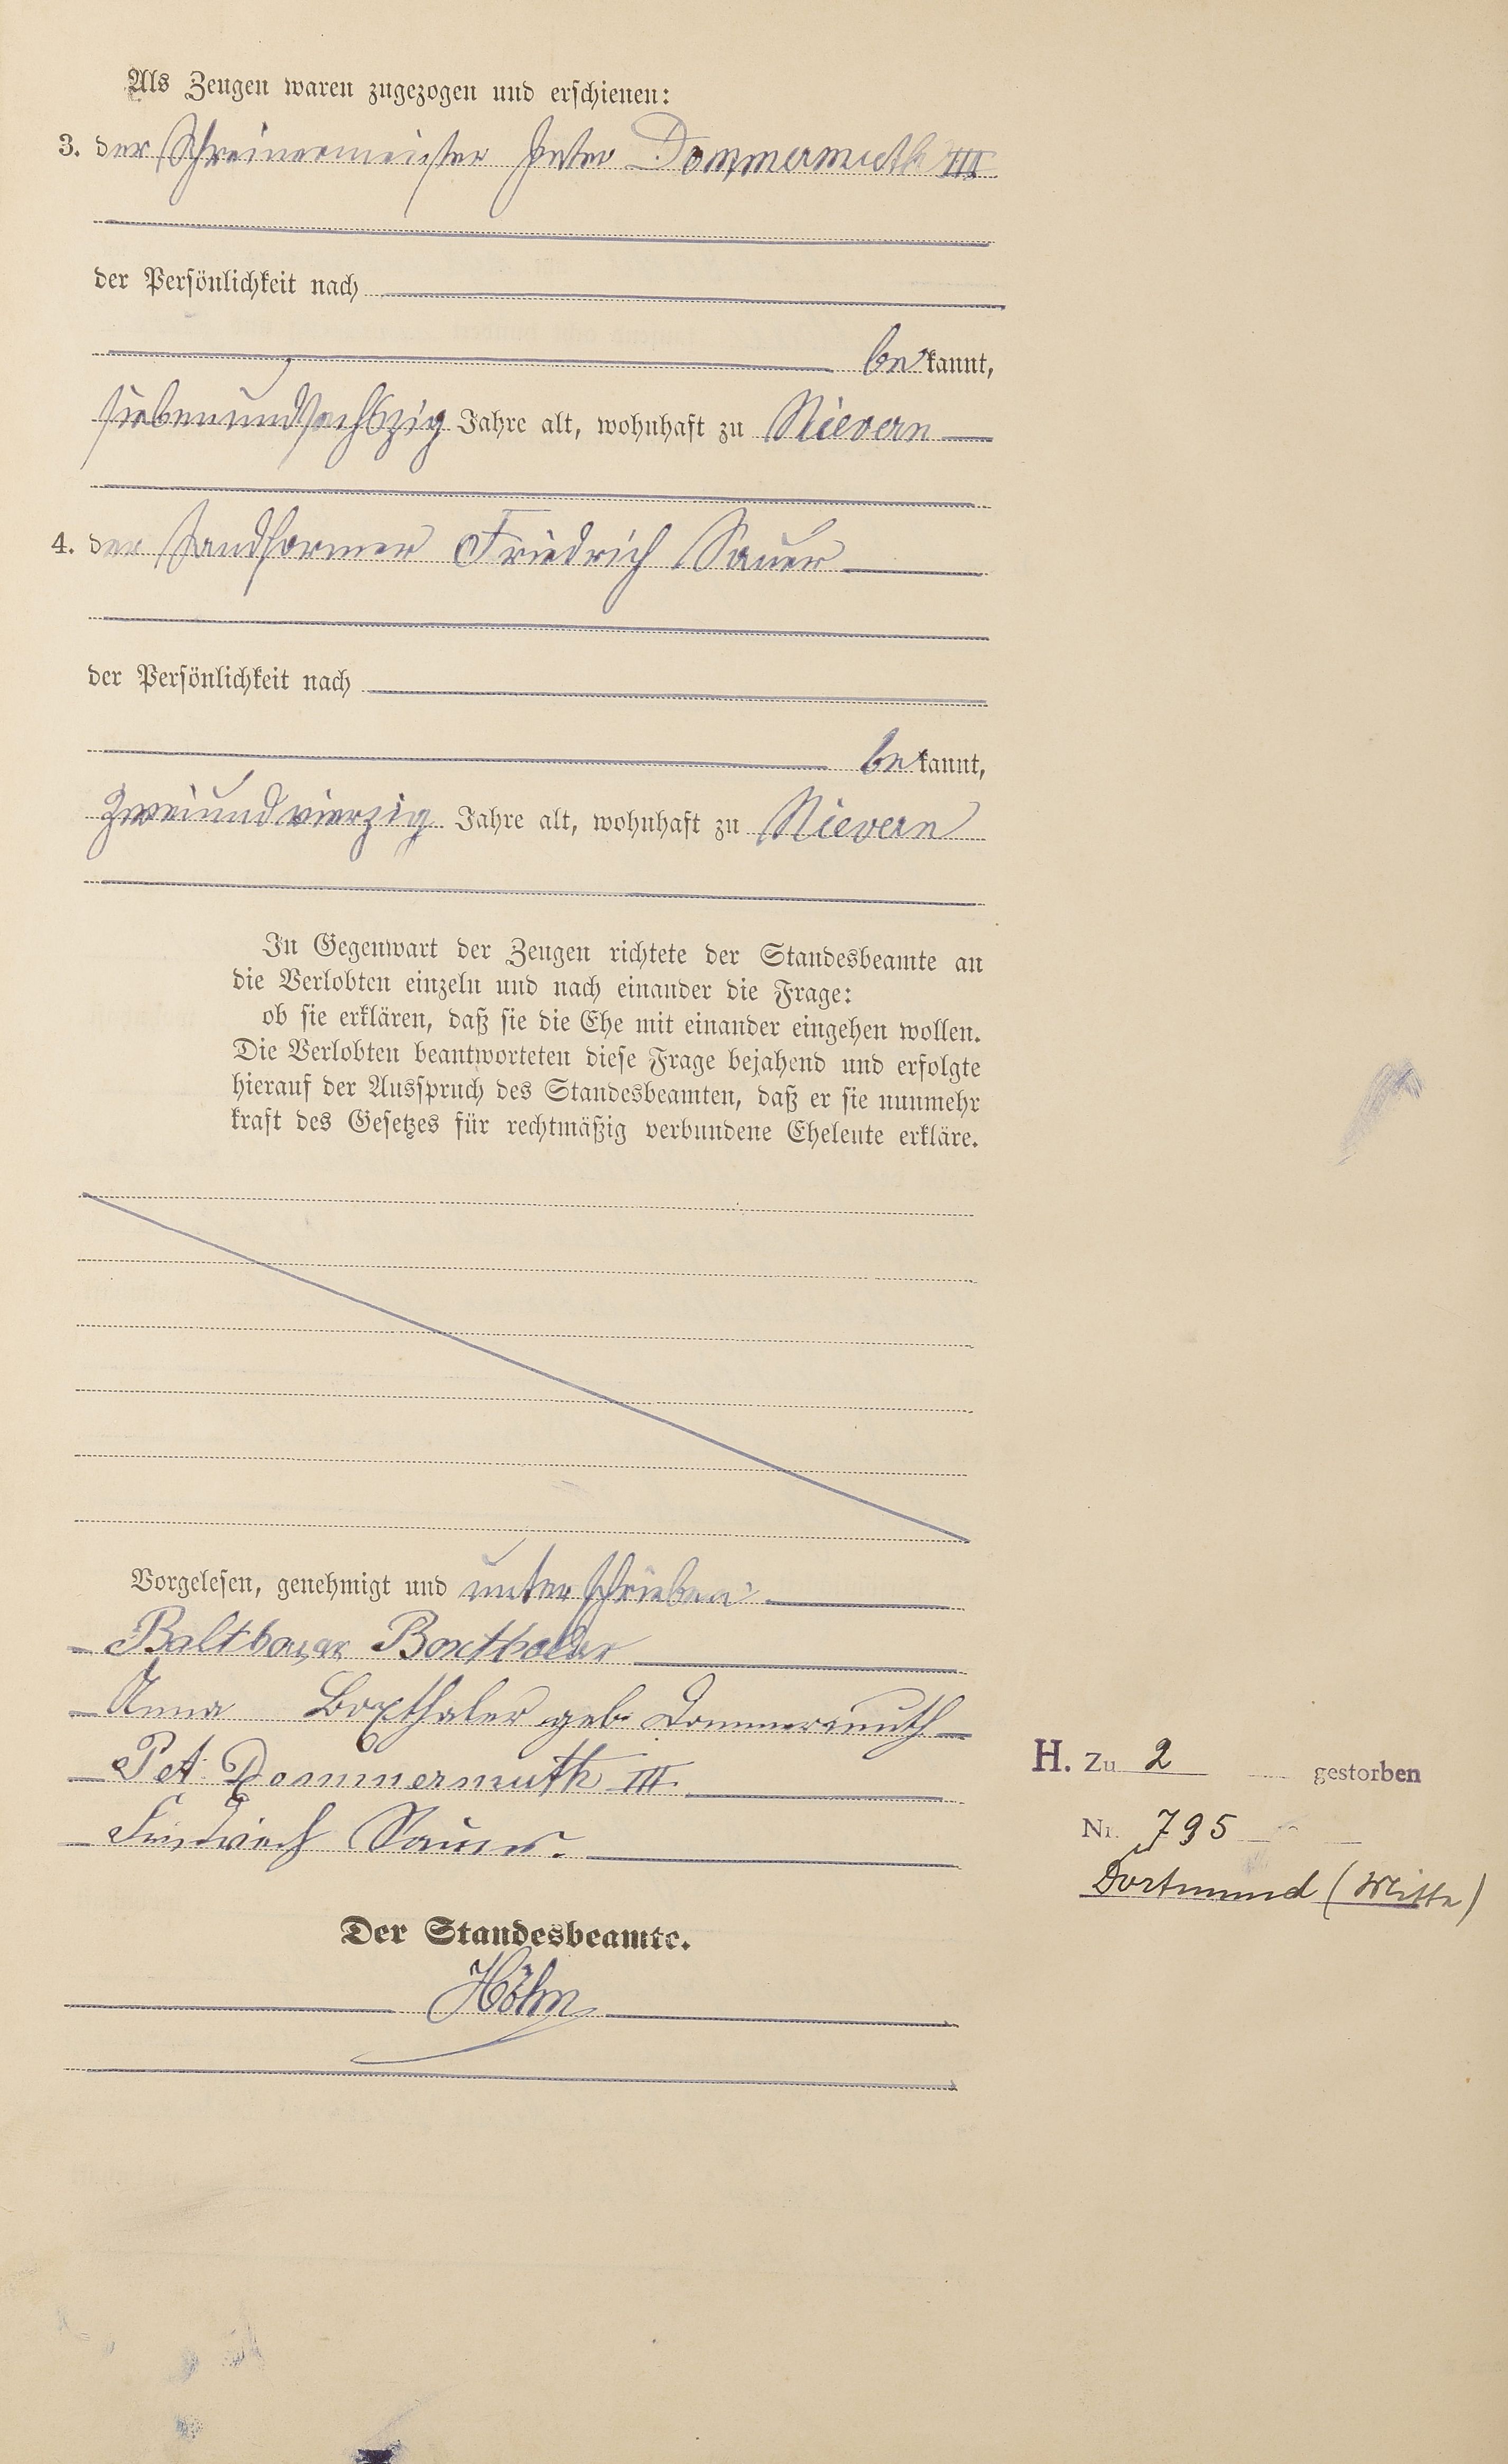 Als Zeugen waren zugezogen und erschienen:
3. der Schreinermeister Peter Dommermuth III
der Persönlichkeit nach
bekannt,
siebenundsechszig Jahre alt, wohnhaft zu Nievern
4. der Sandformer Friedrich Sauer
der Persönlichkeit nach
bekannt,
zweiundvierzig Jahre alt, wohnhaft zu Nievern
In Gegenwart der Zeugen richtete der Standesbeamte an
die Verlobten einzeln und nach einander die Frage:
ob sie erklären, daß sie die Ehe mit einander eingehen wollen.
Die Verlobten beantworteten diese Frage bejahend und erfolgte
hierauf der Ausspruch des Standesbeamten, daß er sie nunmehr
kraft des Gesetzes für rechtmäßig verbundene Eheleute erkläre.
Vorgelesen, genehmigt und unterschrieben:
Balthasar Boxthaler
Anna Boxthaler geb. Dommermuth
Pet Dommermuth III.
Friedrich Sauer.
H. Zu 2 gestorben
Nr. 795
Dortmund (Mitte)
Der Standesbeamte.
Höhn